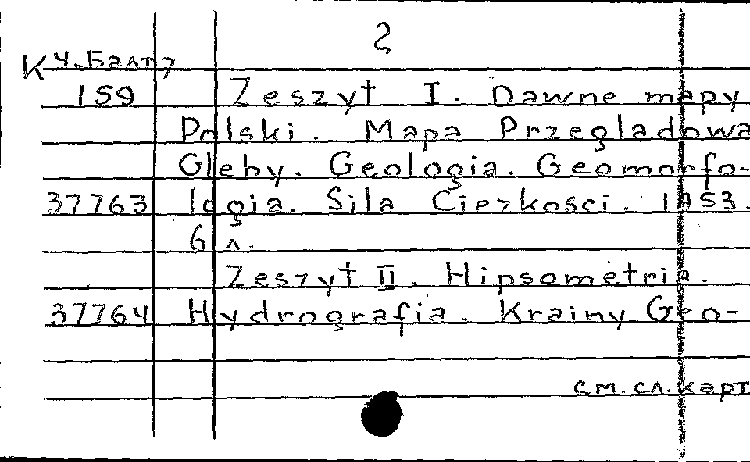 2
К ч.Балт.7
159 Zeszyt I. Dawne mapy
Polski. Mapa Przegladowa
Gleby. Geologia. Geomorfo-
37763 logia. Sila Ciezkosci. 1953.
6 л.
Zeszyt II. Hipsometria.
37764 Hydrografia. Krainy Geo-
см. сл. карт